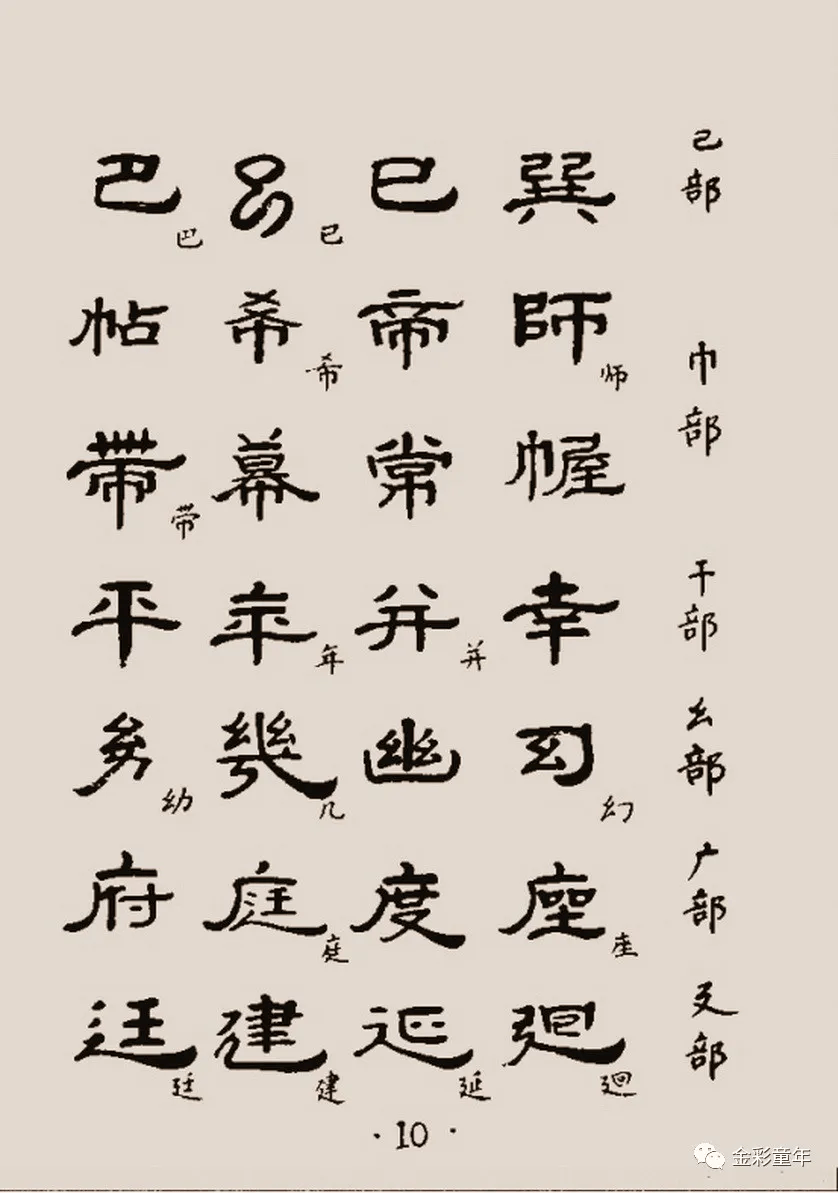 巴 巴 㠯 已 巳 巽 己部
帖 希 希 帝 師 师
帶 带 幕 常 幄 巾部
平 年 年 并 并 幸 干部
幼 幼 幾 几 幽 幻 幻 幺部
府 庭 庭 度 座 座 广部
廷 廷 建 建 延 延 廻 廻 廴部
·10·
金彩童年